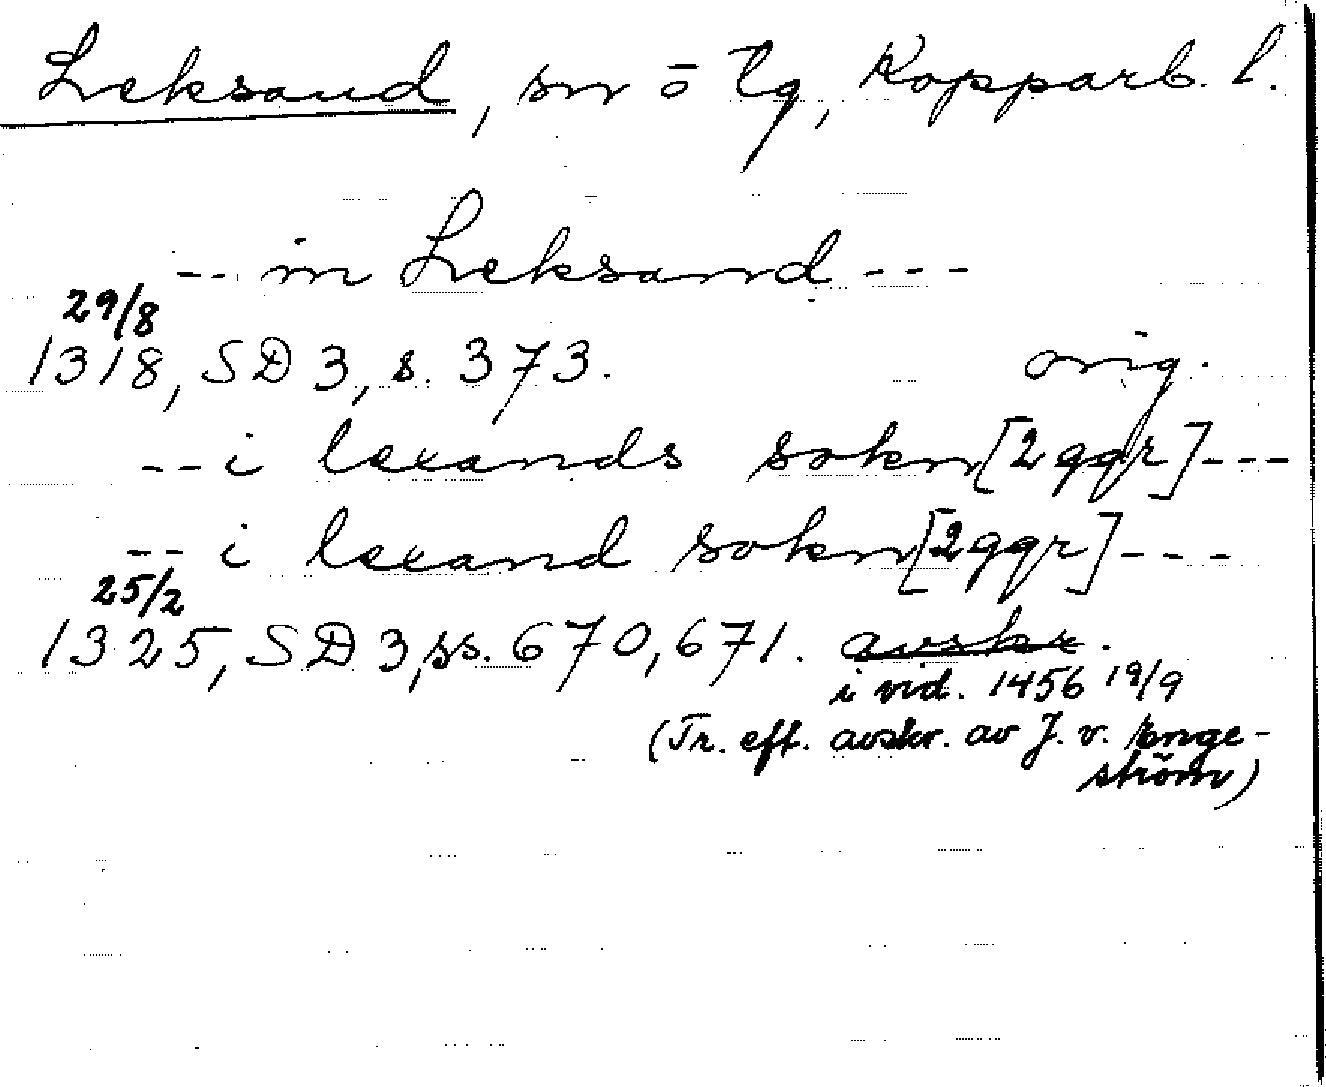 Leksand, sn ō tg, Kopparb. l.
-- in Leksand ---
29/8
1318, SD 3, s. 373. orig.
-- i lexands sokn [2 ggr] ---
-- i lexand sokn [2 ggr] ---
25/2
1325, SD 3, ss. 670, 671. avskr.
i vid. 1456 19/9
(Tr. eft. avskr. av J. v. Enge-
ström)